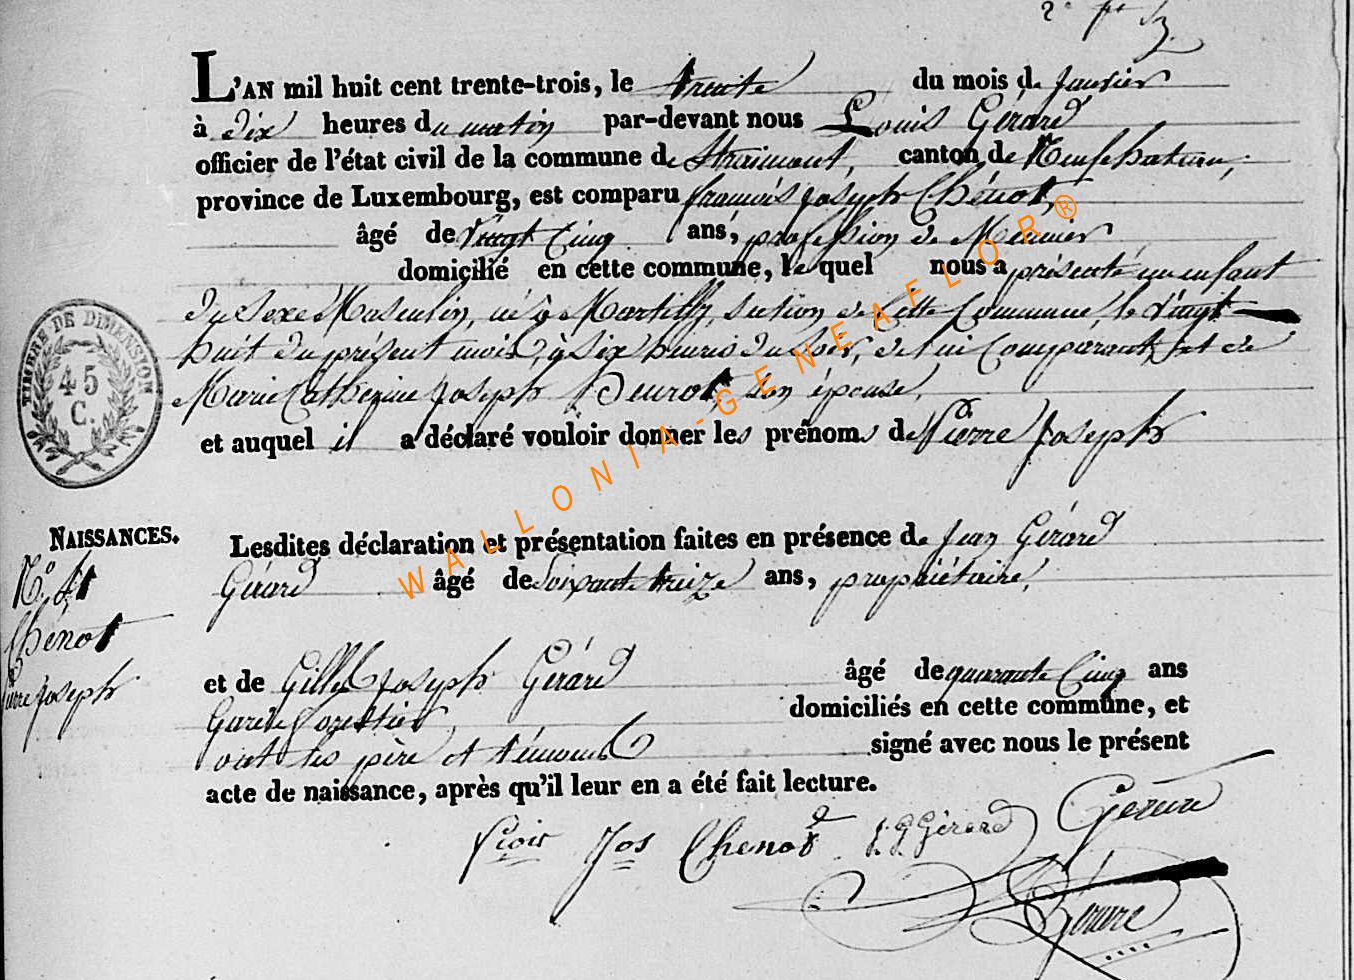 L'AN mil huit cent trente-trois, le trente du mois de Janvier
à dix heures du matin par-devant nous Louis Gérard
officier de l'état civil de la commune de Straimont, canton de Neufchateau,
province de Luxembourg, est comparu françois Joseph Chénot,
âgé de Vingt Cinq ans, profession de Meunier
domicilié en cette commune, le quel nous a présenté un enfant
du sexe Masculin, né à Martilly, section de Cette Commune, le vingt
huit du présent mois, à six heures du soir, de lui Comparant, et de
Marie Catherine Joseph Heurot, son épouse,
et auquel il a déclaré vouloir donner les prénoms de Pierre Joseph
TIMBRE DE DIMENSION
45
C.
NAISSANCES.
Chénot
Pierre Joseph
Lesdites déclaration et présentation faites en présence de Jean Gérard
Gérard âgé de Soixante treize ans, propriétaire,
et de Gilles Joseph Gérard âgé de quarante Cinq ans
Garde forestier, domiciliés en cette commune, et
ont les père et témoins signé avec nous le présent
acte de naissance, après qu'il leur en a été fait lecture.
Jos Chenot J. G. Gérard Gérard
Gérard
WALLONIA-GENEAFLOR®